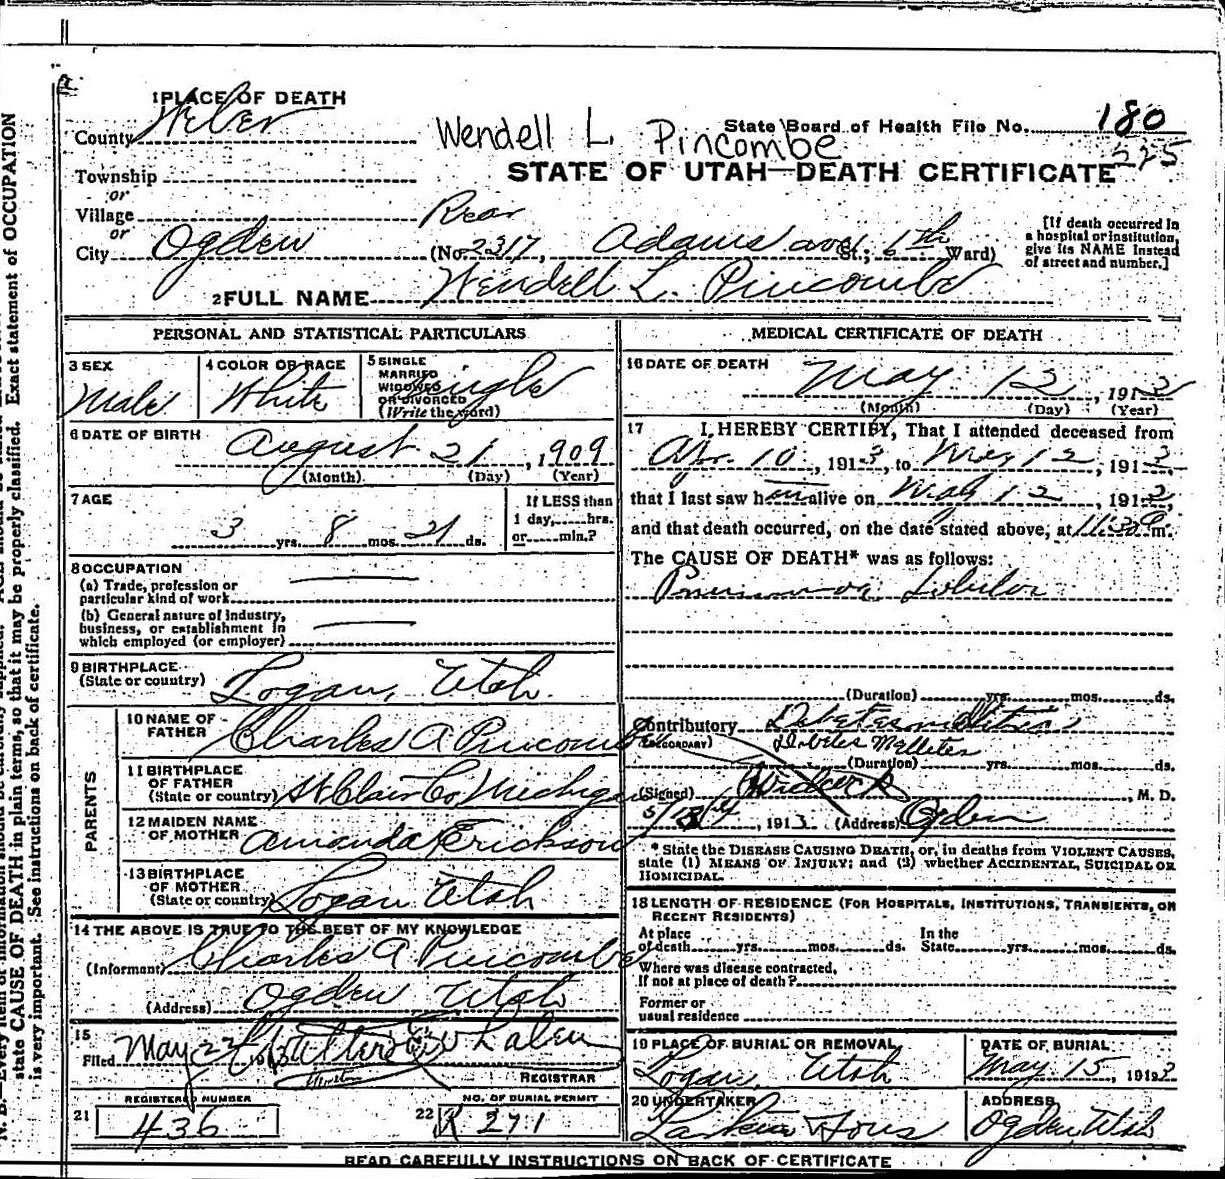 1 PLACE OF DEATH
County Weber
Wendell L. Pincombe
State Board of Health File No. 180
225
STATE OF UTAH—DEATH CERTIFICATE
Township
or
Village
or
City Ogden
Rear
(No. 2317, Adams ave St.; 6th Ward)
[If death occurred in
a hospital or institution,
give its NAME instead
of street and number.]
2 FULL NAME Wendell L. Pincombe
PERSONAL AND STATISTICAL PARTICULARS
3 SEX
Male
4 COLOR OR RACE
White
5 SINGLE
MARRIED
WIDOWED
OR DIVORCED
(Write the word)
Single
6 DATE OF BIRTH
August 21, 1909
(Month) (Day) (Year)
7 AGE
3 yrs. 8 mos. 21 ds.
If LESS than
1 day, hrs.
or min.?
8 OCCUPATION
(a) Trade, profession or
particular kind of work
(b) General nature of industry,
business, or establishment in
which employed (or employer)
9 BIRTHPLACE
(State or country) Logan, Utah.
PARENTS
10 NAME OF
FATHER Charles A Pincombe
11 BIRTHPLACE
OF FATHER
(State or country) St Clair Co, Michigan
12 MAIDEN NAME
OF MOTHER Amanda Erickson
13 BIRTHPLACE
OF MOTHER
(State or country) Logan Utah
14 THE ABOVE IS TRUE TO THE BEST OF MY KNOWLEDGE
(Informant) Charles A Pincombe
(Address) Ogden Utah
15
Filed May 22 1913 Walter Whalen
REGISTRAR
REGISTERED NUMBER
21 436
NO. OF BURIAL PERMIT
22 R 271
MEDICAL CERTIFICATE OF DEATH
16 DATE OF DEATH
May 12, 1913
(Month) (Day) (Year)
17 I HEREBY CERTIFY, That I attended deceased from
Apr. 10, 1913, to May 12, 1913,
that I last saw him alive on May 12, 1913
and that death occurred, on the date stated above, at 11:30 m.
The CAUSE OF DEATH* was as follows:
Pneumonia Lobular
(Duration) yrs. mos. ds.
Contributory Diabetes mellitus
(SECONDARY) Diabetes Mellites
(Duration) yrs. mos. ds.
(Signed) M. D.
1913 (Address) Ogden
* State the DISEASE CAUSING DEATH, or, in deaths from VIOLENT CAUSES,
state (1) MEANS OF INJURY; and (2) whether ACCIDENTAL, SUICIDAL OR
HOMICIDAL.
18 LENGTH OF RESIDENCE (FOR HOSPITALS, INSTITUTIONS, TRANSIENTS, OR
RECENT RESIDENTS)
At place In the
of death yrs. mos. ds. State yrs. mos. ds.
Where was disease contracted,
if not at place of death?
Former or
usual residence
19 PLACE OF BURIAL OR REMOVAL
Logan, Utah
DATE OF BURIAL
May 15, 1913
20 UNDERTAKER
Larkin & Sons
ADDRESS
Ogden, Utah
READ CAREFULLY INSTRUCTIONS ON BACK OF CERTIFICATE
state CAUSE OF DEATH in plain terms, so that it may be properly classified. Exact statement of OCCUPATION
is very important. See instructions on back of certificate.